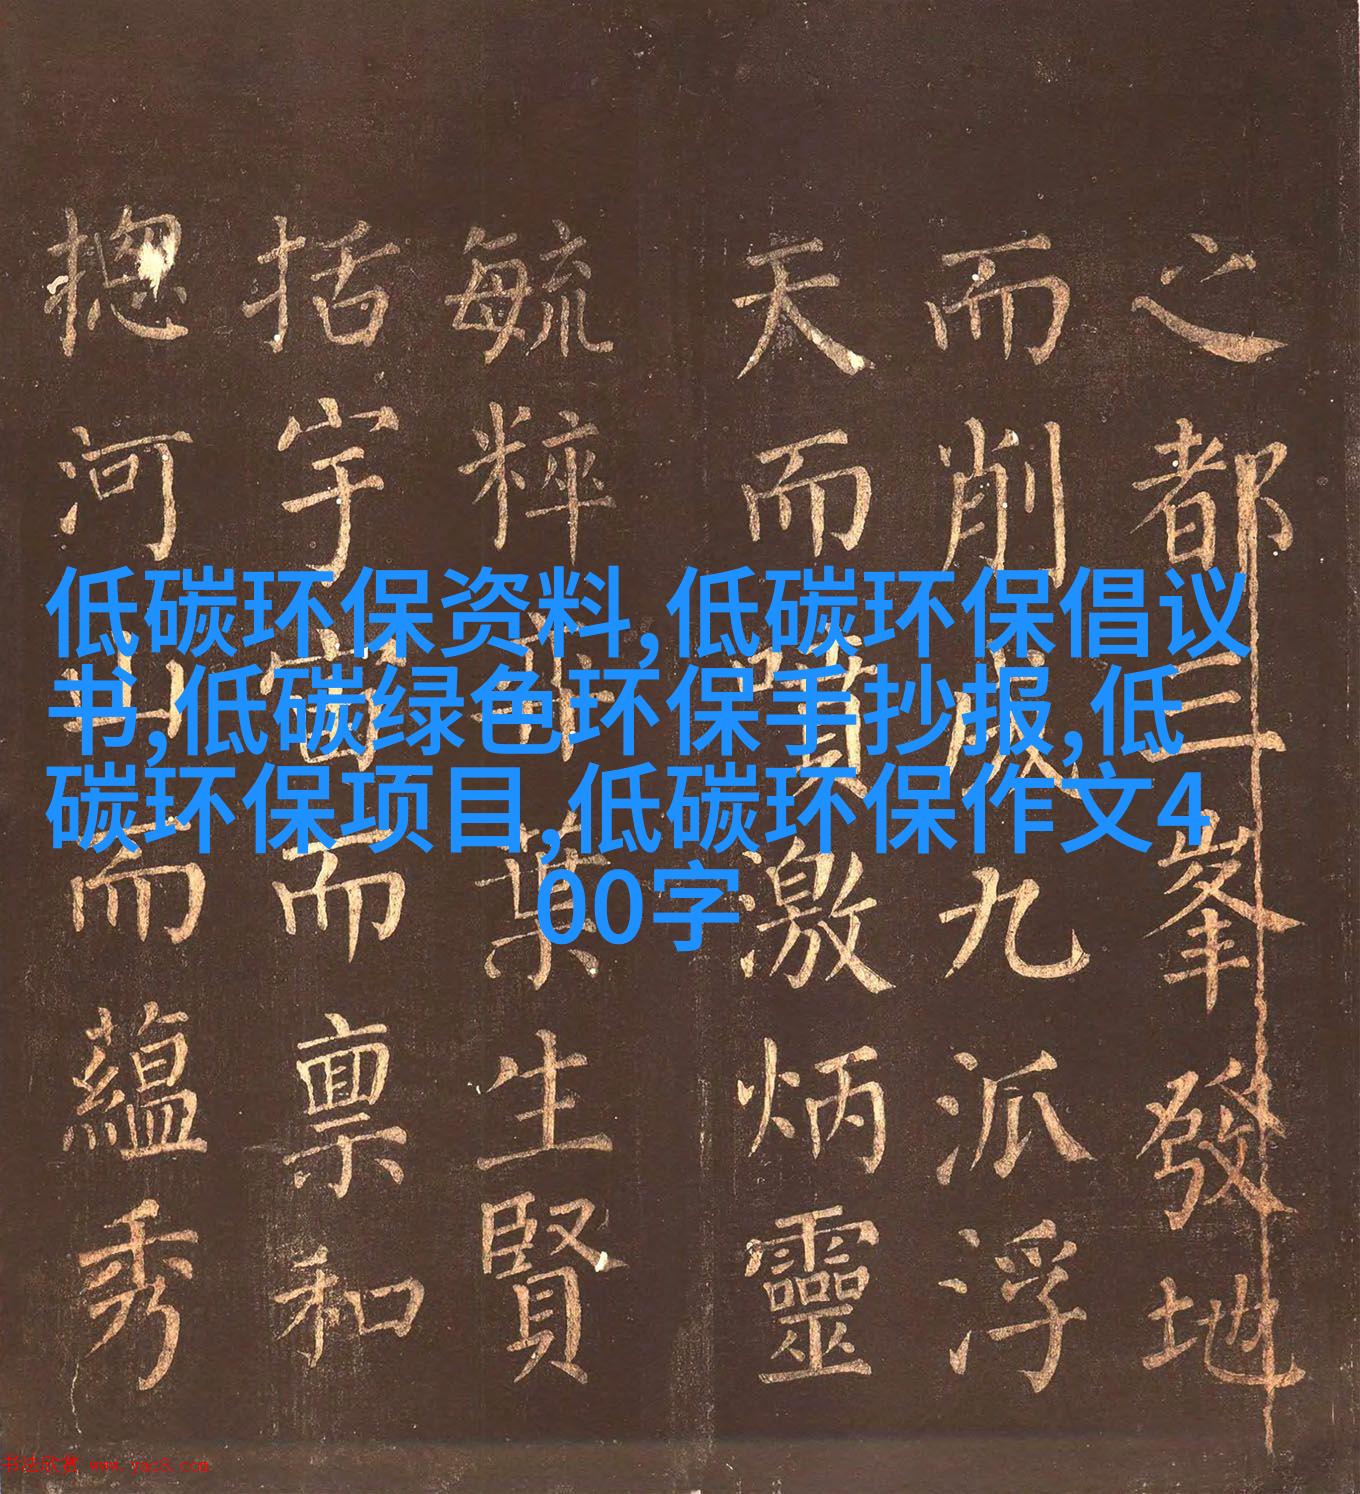 低碳环保资料,低碳环保倡议
书,低碳绿色环保手抄报,低
碳环保项目,低碳环保作文4
00字
之都三峯發地
而削成九派浮
天而噴激炳靈
毓粹葉生賢
括宇宙而禀和
摠河山而蘊秀
书法欣赏 www.yac8.com